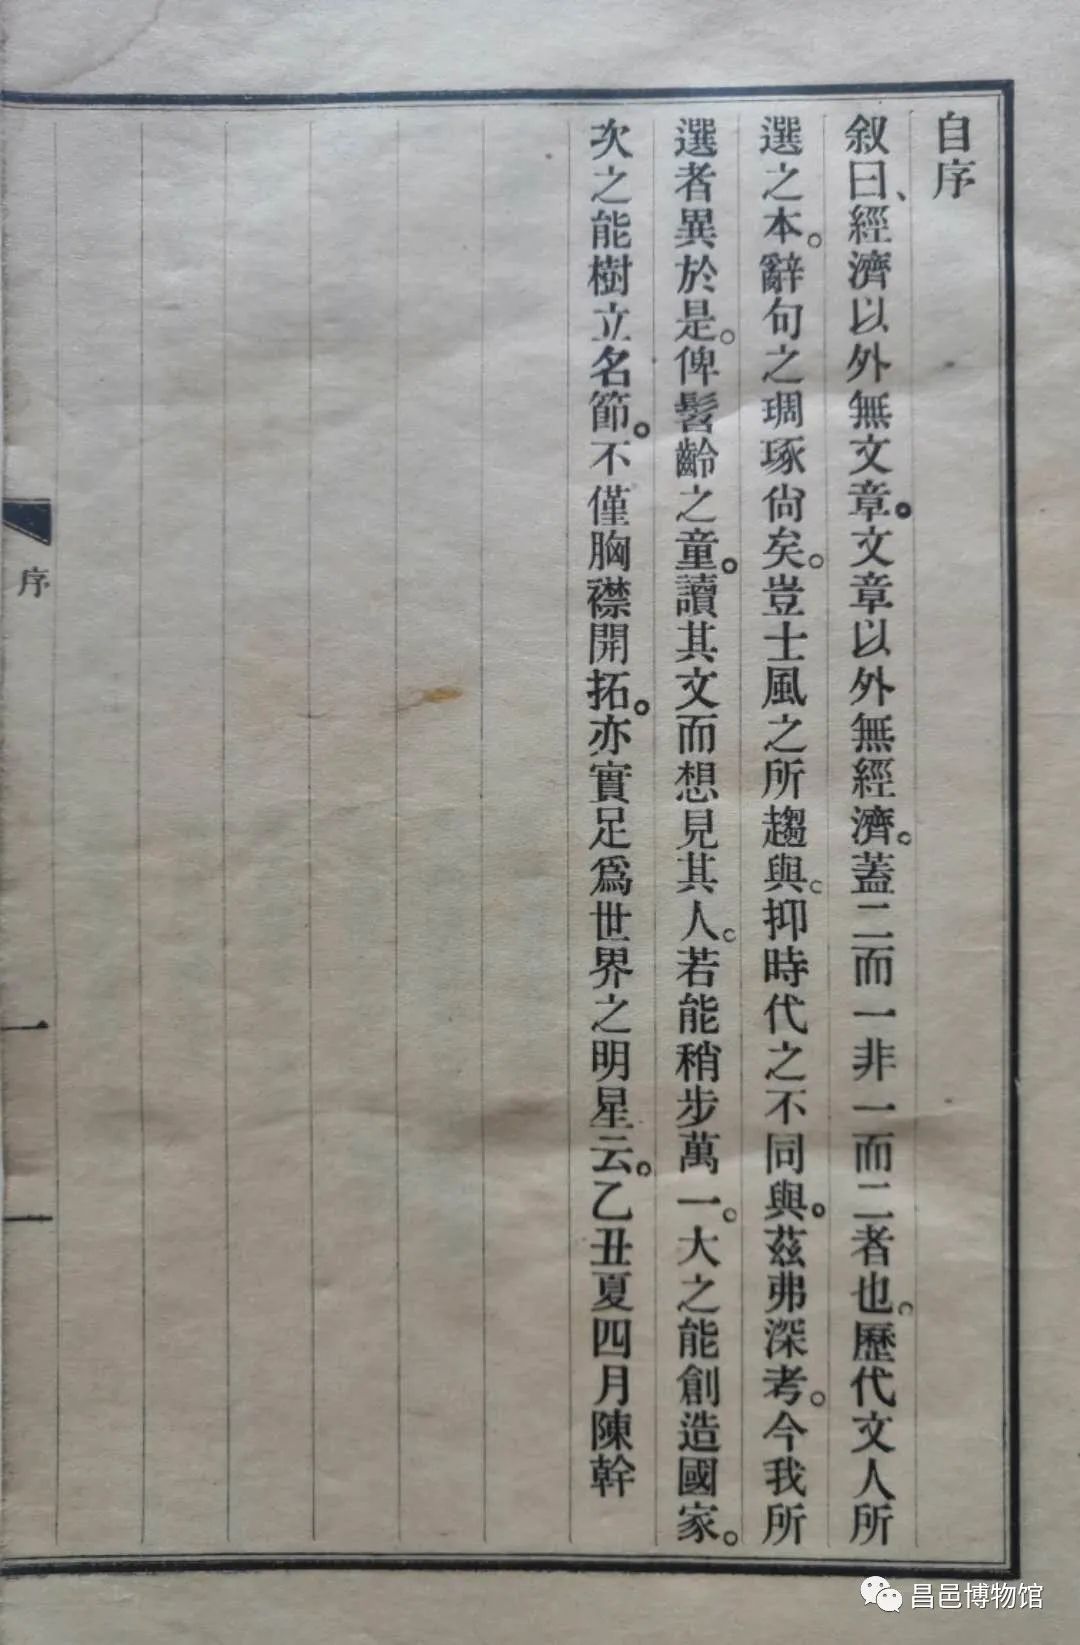 自序
叙曰、經濟以外無文章。文章以外無經濟。蓋二而一非一而二者也。歷代文人所
選之本。辭句之琱琢尙矣。豈士風之所趨與。抑時代之不同與。茲弗深考。今我所
選者異於是。俾髫齡之童。讀其文而想見其人。若能稍步萬一。大之能創造國家。
次之能樹立名節。不僅胸襟開拓。亦實足爲世界之明星云。乙丑夏四月陳幹
序
一
一
昌邑博物馆